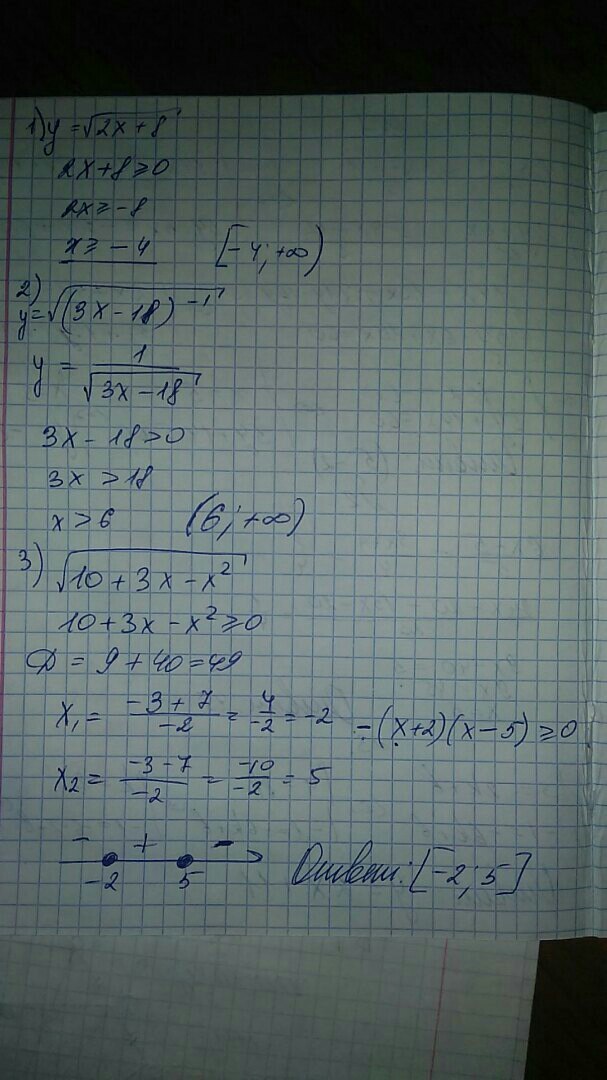 1) y = √2x + 8
2x + 8 ≥ 0
2x ≥ -8
x ≥ -4 [-4; +∞)
2)
y = √(3x - 18)⁻¹
y = 1/√3x - 18
3x - 18 > 0
3x > 18
x > 6 (6; +∞)
3) √10 + 3x - x²
10 + 3x - x² ≥ 0
D = 9 + 40 = 49
x₁ = -3 + 7/-2 = 4/-2 = -2 -(x+2)(x-5) ≥ 0
x₂ = -3 - 7/-2 = -10/-2 = 5
- + -
-2 5 Ответ: [-2; 5]